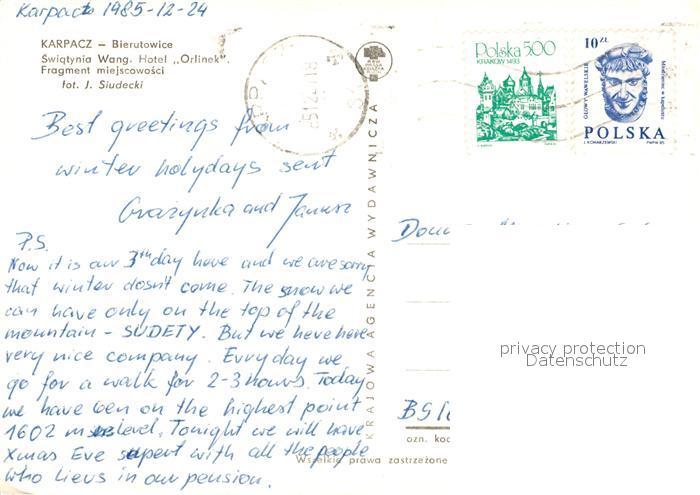 Karpacz 1985-12-24
KARPACZ – Bierutowice
Świątynia Wang. Hotel „Orlinek".
Fragment miejscowości
fot. J. Siudecki
Best greetings from
winter holydays sent
Grażynka and Janusz
P.S.
Now it is our 3th day here and we are sorry
that winter dosn't come. The snow we
can have only on the top of the
mountain – SUDETY. But we have here
very nice company. Evryday we
go for a walk for 2-3 hours. Today
we have ben on the highest point
1602 m level. Tonight we will have
Xmas Eve supert with all the people
who lievs in our pension.
KRAJOWA AGENCJA WYDAWNICZA
Polska 5.00
KRAKÓW 1493
10 ZŁ
GŁOWY WAWELSKIE
POLSKA
PWPW 85
ozn. kod
Wszelkie prawa zastrzeżone
privacy protection
Datenschutz